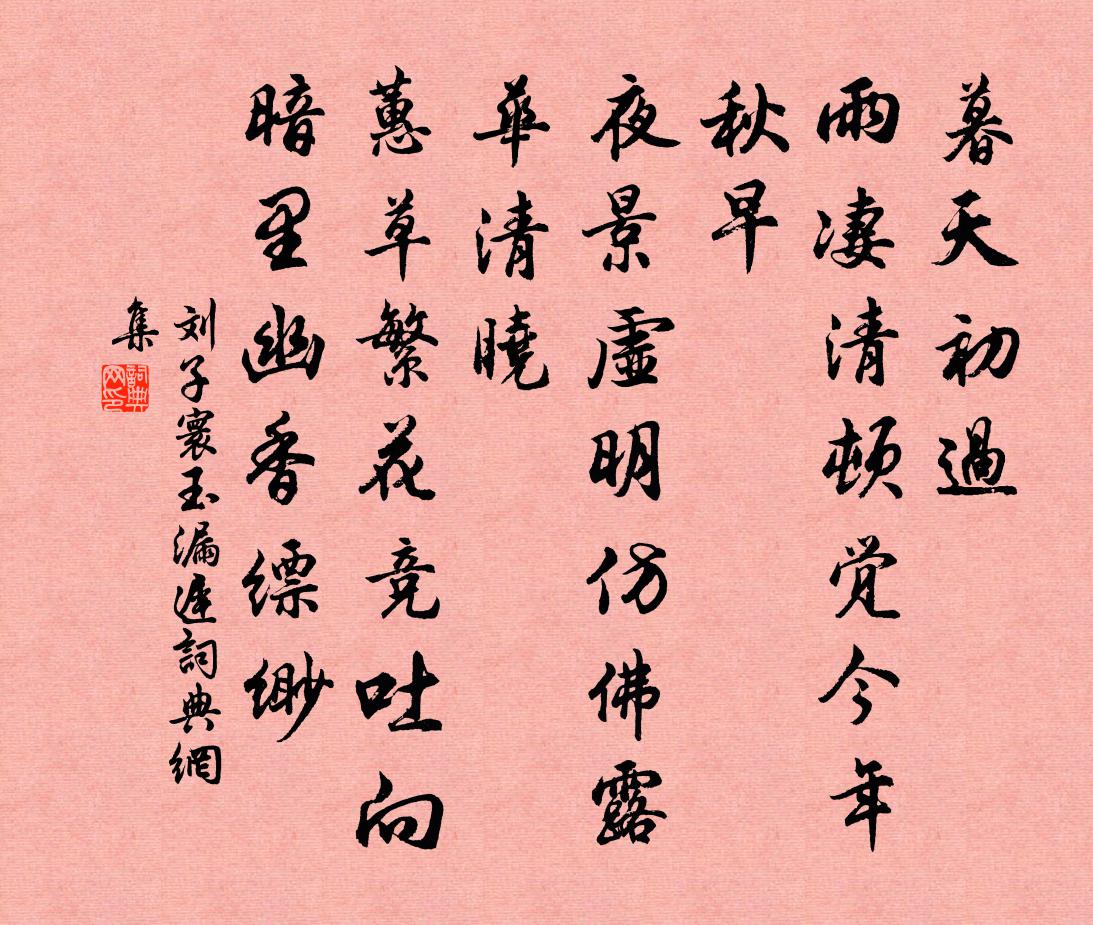 暮天初過
雨凄清頓觉今年
秋早
夜景虛明仿佛露
華清曉
蕙草繁花竞吐向
暗里幽香縹緲
刘子寰玉漏遲詞典網
集
詞典網印